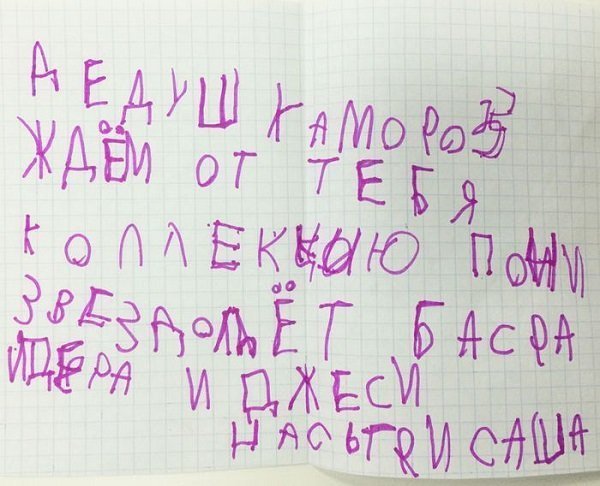 ДЕДУШКАМОРОЗ
ЖДЁМ ОТ ТЕБЯ
КОЛЛЕКЦИЮ ПОНИ
ЗВЕЗДОЛЁТ БАСРА
ИДЕРА И ДЖЕСИ
НАСЬТЯИ САША